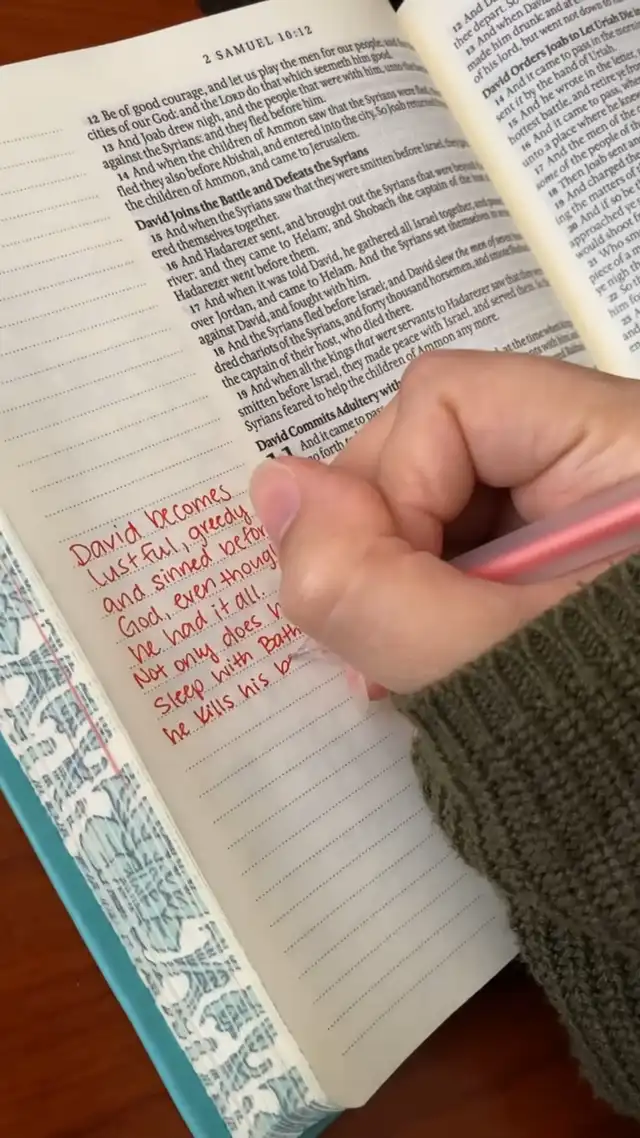 2 SAMUEL 10:12
12 Be of good courage, and let us play the men for our people, and
cities of our God: and the LORD do that which seemeth him good.
13 And Joab drew nigh, and the people that were with him, unto the
against the Syrians: and they fled before him.
14 And when the children of Ammon saw that the Syrians were fled,
fled they also before Abishai, and entered into the city. So Joab returned
the children of Ammon, and came to Jerusalem.
David Joins the Battle and Defeats the Syrians
15 And when the Syrians saw that they were smitten before Israel, they
ered themselves together.
16 And Hadarezer sent, and brought out the Syrians that were
river: and they came to Helam; and Shobach the captain of the
Hadarezer went before them.
17 And when it was told David, he gathered all Israel together, and
over Jordan, and came to Helam. And the Syrians set themselves in
against David, and fought with him.
18 And the Syrians fled before Israel; and David slew the men of
dred chariots of the Syrians, and forty thousand horsemen, and
the captain of their host, who died there.
19 And when all the kings that were servants to Hadarezer saw that they
smitten before Israel, they made peace with Israel, and served them.
Syrians feared to help the children of Ammon any more.
David Commits Adultery with
And it came to
at the time
David becomes
lustful, greedy
and sinned
God, even
he had it all.
Not only does
sleep with
he kills his
thee depart. So
13 And when David
made him drunk: and at
of his lord, but went not down to
David Orders Joab to Let Uriah Die in
14 And it came to pass in the
sent it by the hand of Uriah.
15 And he wrote in the
hottest battle, and retire ye
16 And it came to pass,
unto a place where he
17 And the men of the
some of the people of
18 Then Joab sent
19 And charged the
ing the matters of
20 And if so be
approached
would shoot
21 Who
piece of a
ye nigh
22 So